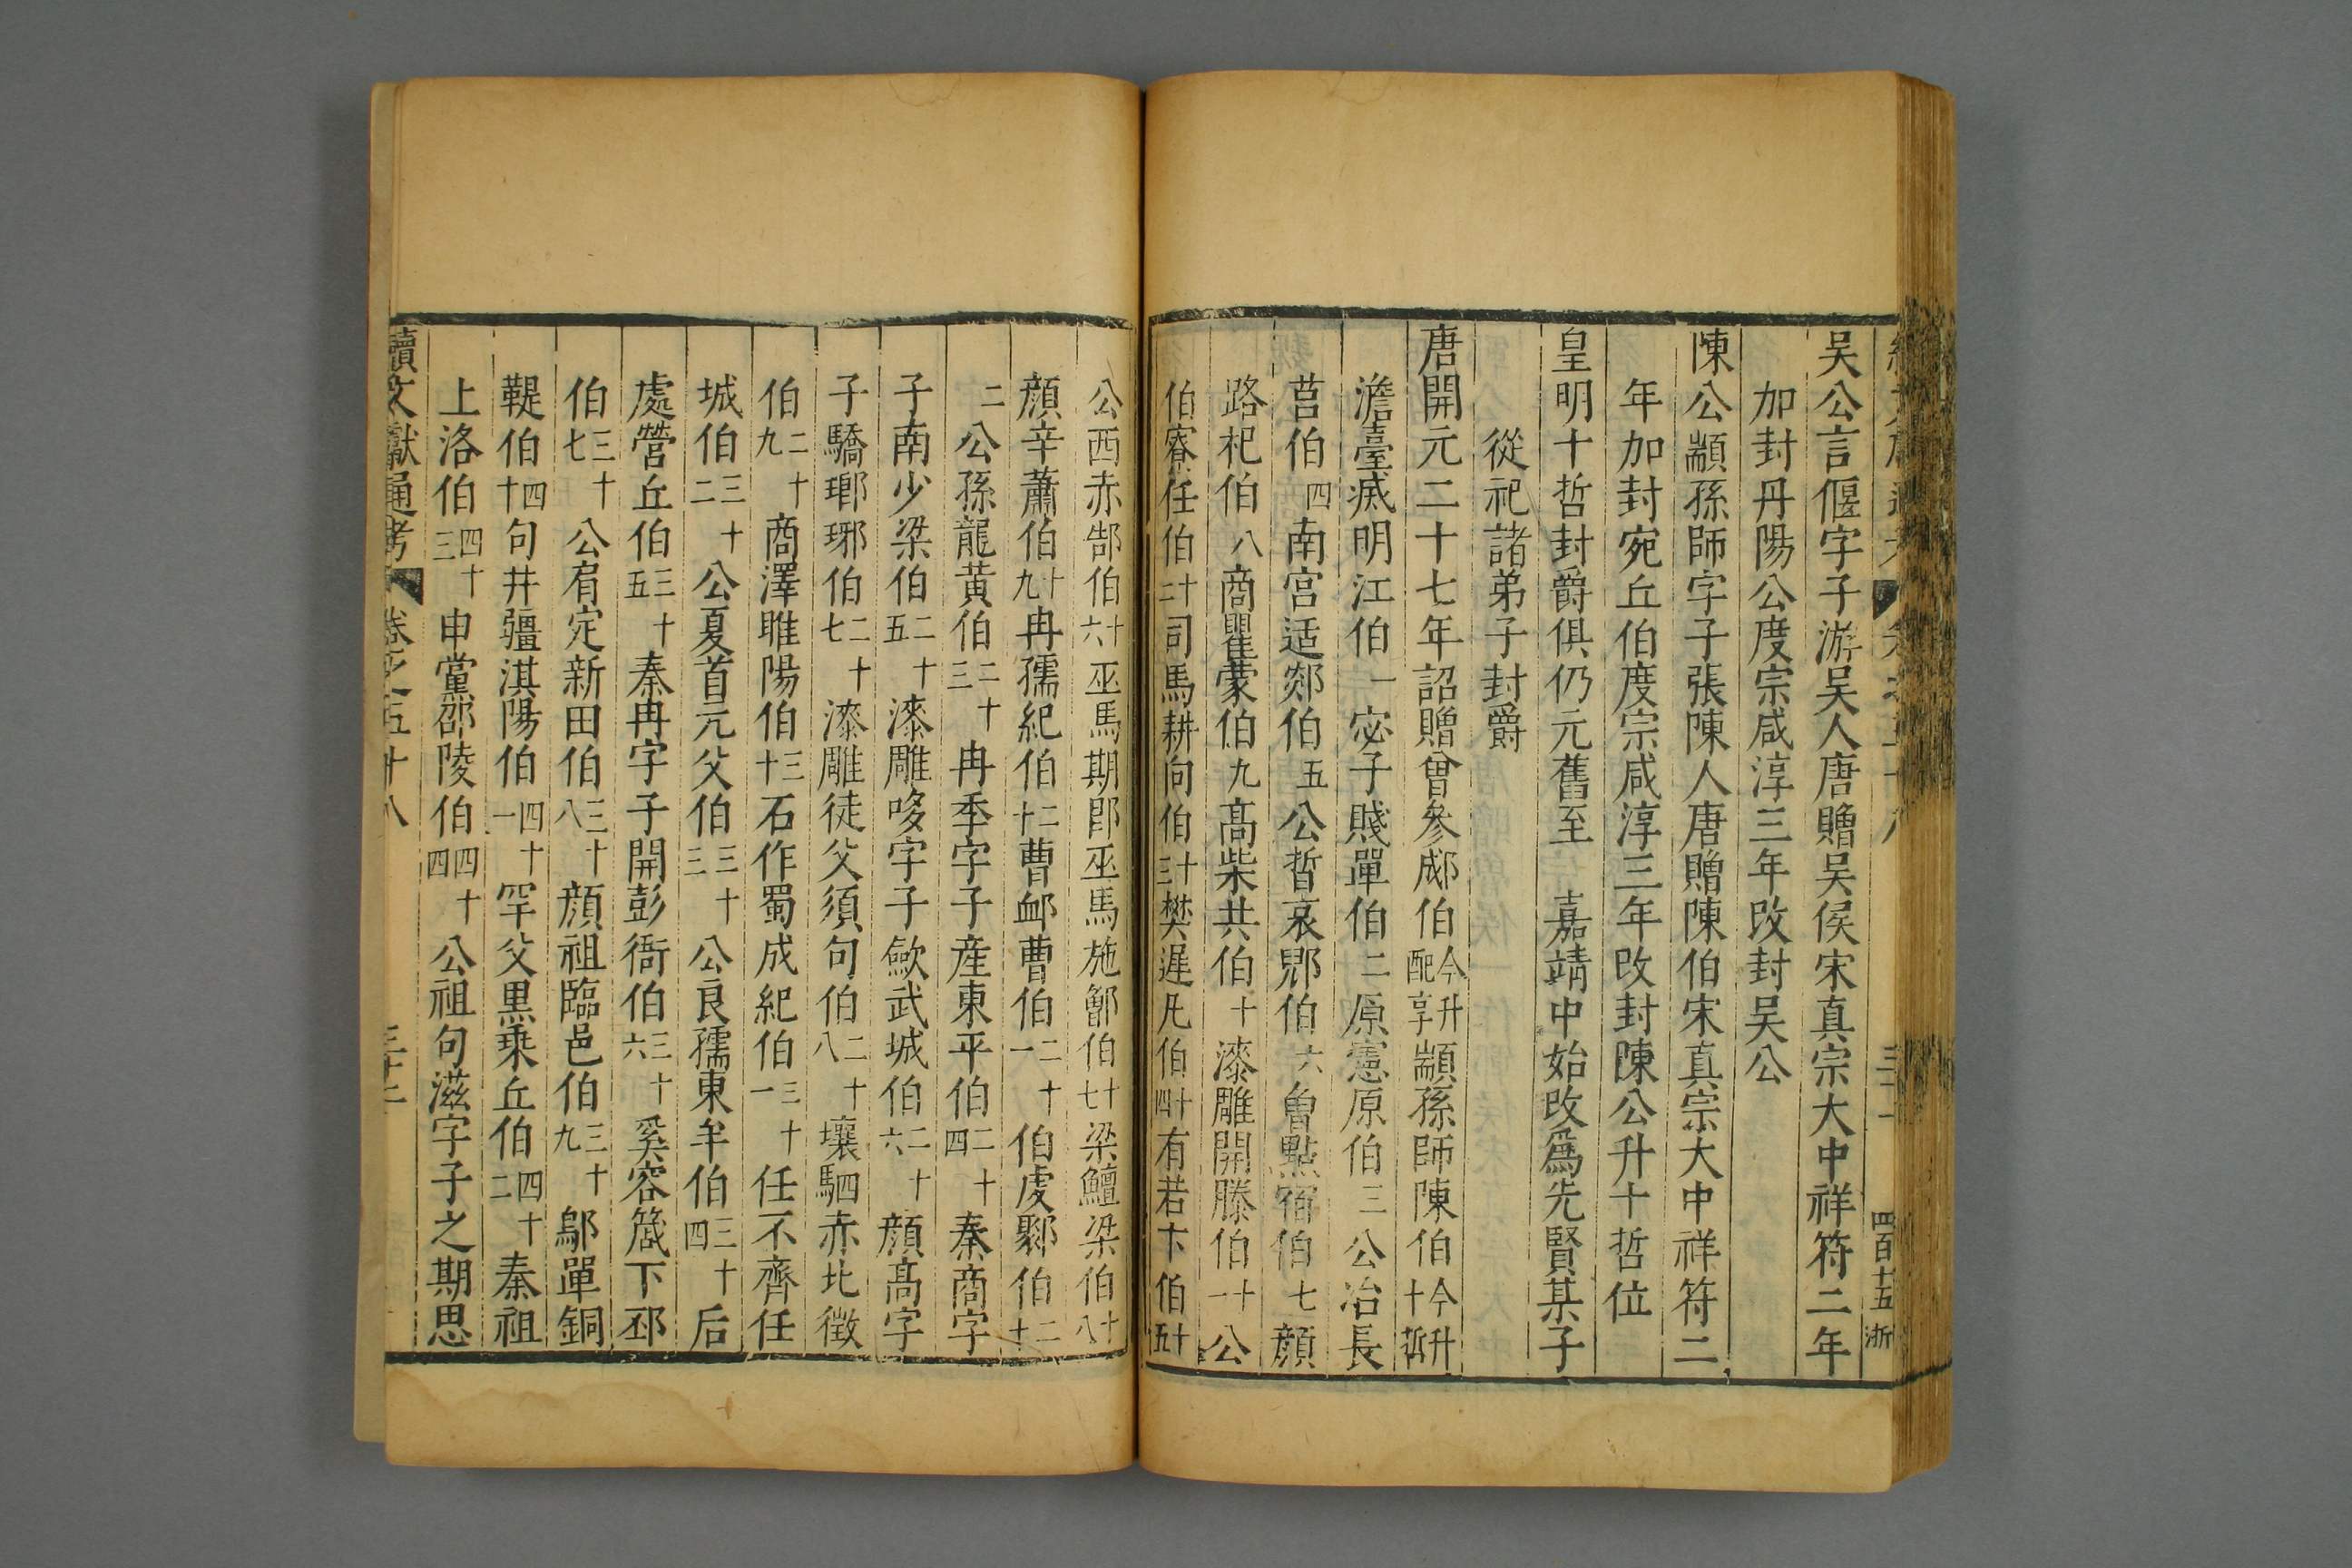 四百十五 浙
吴公言偃字子游吴人唐贈吴侯宋真宗大中祥符二年
加封丹陽公度宗咸淳三年改封吴公
陳公顓孫師字子張陳人唐贈陳伯宋真宗大中祥符二
年加封宛丘伯度宗咸淳三年改封陳公升十哲位
皇明十哲封爵俱仍元舊至 嘉靖中始改爲先賢某子
從祀諸弟子封爵
唐開元二十七年詔贈曾參郕伯今升配享顓孫師陳伯今升十哲
澹臺烕明江伯一宓子賤單伯二原憲原伯三公冶長
莒伯四南宫适郯伯五公晳哀郳伯六曾點宿伯七顔
路杞伯八商瞿蒙伯九髙柴共伯十漆雕開滕伯十一公
伯寮任伯十二司馬耕向伯十三樊遲凡伯十四有若卞伯十五
公西赤郜伯十六巫馬期郎巫馬施鄫伯十七梁鱣梁伯十八
顔辛蕭伯十九冉孺紀伯二十曹䘏曹伯二十一伯虔鄹伯二十
二公孫龍黄伯二十三冉季字子産東平伯二十四秦商字
子南少梁伯二十五漆雕哆字子歛武城伯二十六顔髙字
子驕瑯琊伯二十七漆雕徒父須句伯二十八壤駟赤北徵
伯二十九商澤睢陽伯三十石作蜀成紀伯三十一任不齊任
城伯三十二公夏首元父伯三十三公良孺東牟伯三十四后
處營丘伯三十五秦冉字子開彭衙伯三十六奚容箴下邳
伯三十七公肩定新田伯三十八顔祖臨邑伯三十九鄔單銅
鞮伯四十句井疆淇陽伯四十一罕父黒乗丘伯四十二秦祖
上洛伯四十三申黨邵陵伯四十四公祖句滋字子之期思
續文獻通考 卷之五十八 三十二